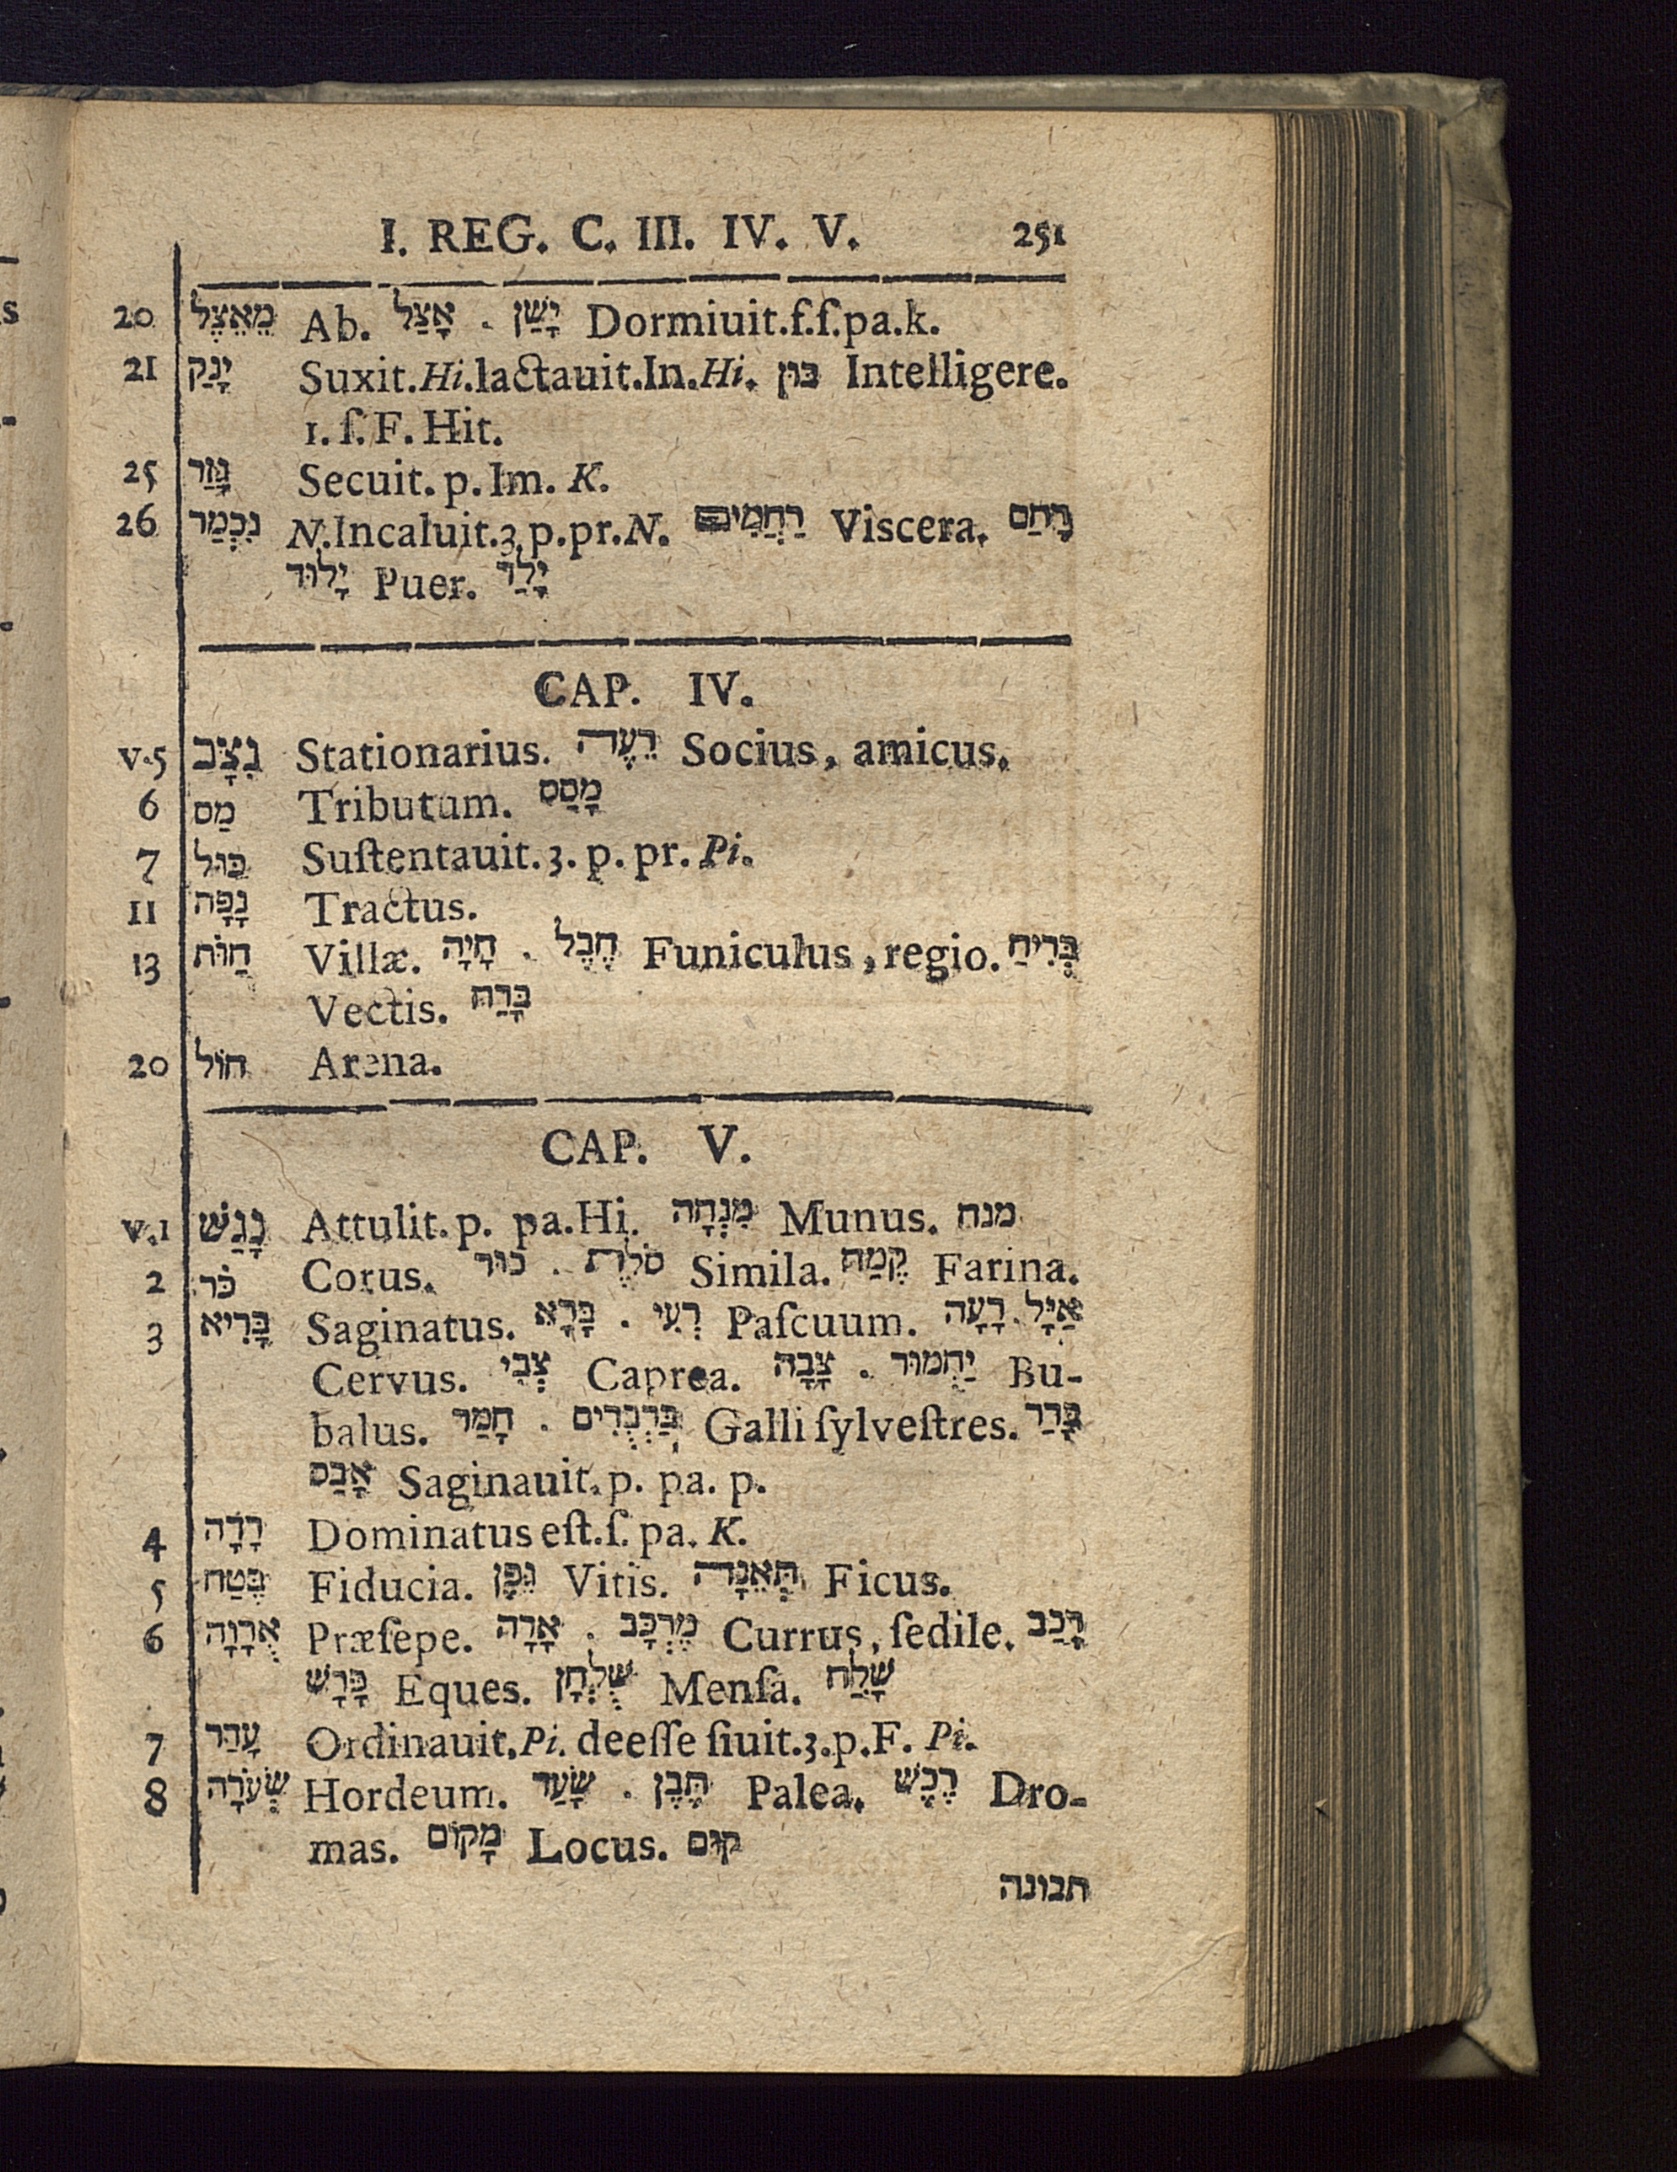 I. REG. C. III. IV. V. 251
20 מֵאֵצֶל Ab. אָצַל . יָשַׁן Dormiuit.f.ſ.pa.k.
21 יָנַק Suxit.Hi.lactauit.In.Hi. בּוּן Intelligere.
1. ſ. F. Hit.
25 גָּזַר Secuit. p. Im. K.
26 נִכְמַר N.Incaluit.3.p.pr.N. רַחֲמִים Viscera. רָחַם
יָלוּד Puer. יָלַד
CAP. IV.
v.5 נִצָּב Stationarius. רֵעֶה Socius, amicus.
6 מַס Tributum. מָסַס
7 כּוּל Suſtentauit. 3. p. pr. Pi.
11 נָפָה Tractus.
13 חַוֹּת Villæ. חָיָה . חֶבֶל Funiculus, regio. בְּרִיחַ
Vectis. בָּרַח
20 חוֹל Arena.
CAP. V.
v.1 נָגַשׁ Attulit. p. pa. Hi. מִנְחָה Munus. מנח
2 כֹּר Corus. כור . סֹלֶת Simila. קֶמַח Farina.
3 בָּרִיא Saginatus. בָּרָא . רְעִי Paſcuum. רָעָה . אַיָּל
Cervus. צְבִי Caprea. צָבָה . יַחְמוּר Bu-
balus. חָמַר . בַּרְבֻּרִים Galli ſylveſtres. בָּרַר
אָבַס Saginauit. p. pa. p.
4 רָדָה Dominatus eſt. ſ. pa. K.
5 בֶּטַח Fiducia. גֶּפֶן Vitis. תְּאֵנָה Ficus.
6 אֻרְוָה Præſepe. אָרָה . מֶרְכָּב Currus, ſedile. רָכַב
פָּרָשׁ Eques. שֻׁלְחָן Menſa. שָׁלַח
7 עָדַר Ordinauit. Pi. deeſſe ſiuit. 3. p. F. Pi.
8 שְׂעֹרָה Hordeum. שָׂעַר . תֶּבֶן Palea. רֶכֶשׁ Dro-
mas. מָקוֹם Locus. קוּם
תבונה